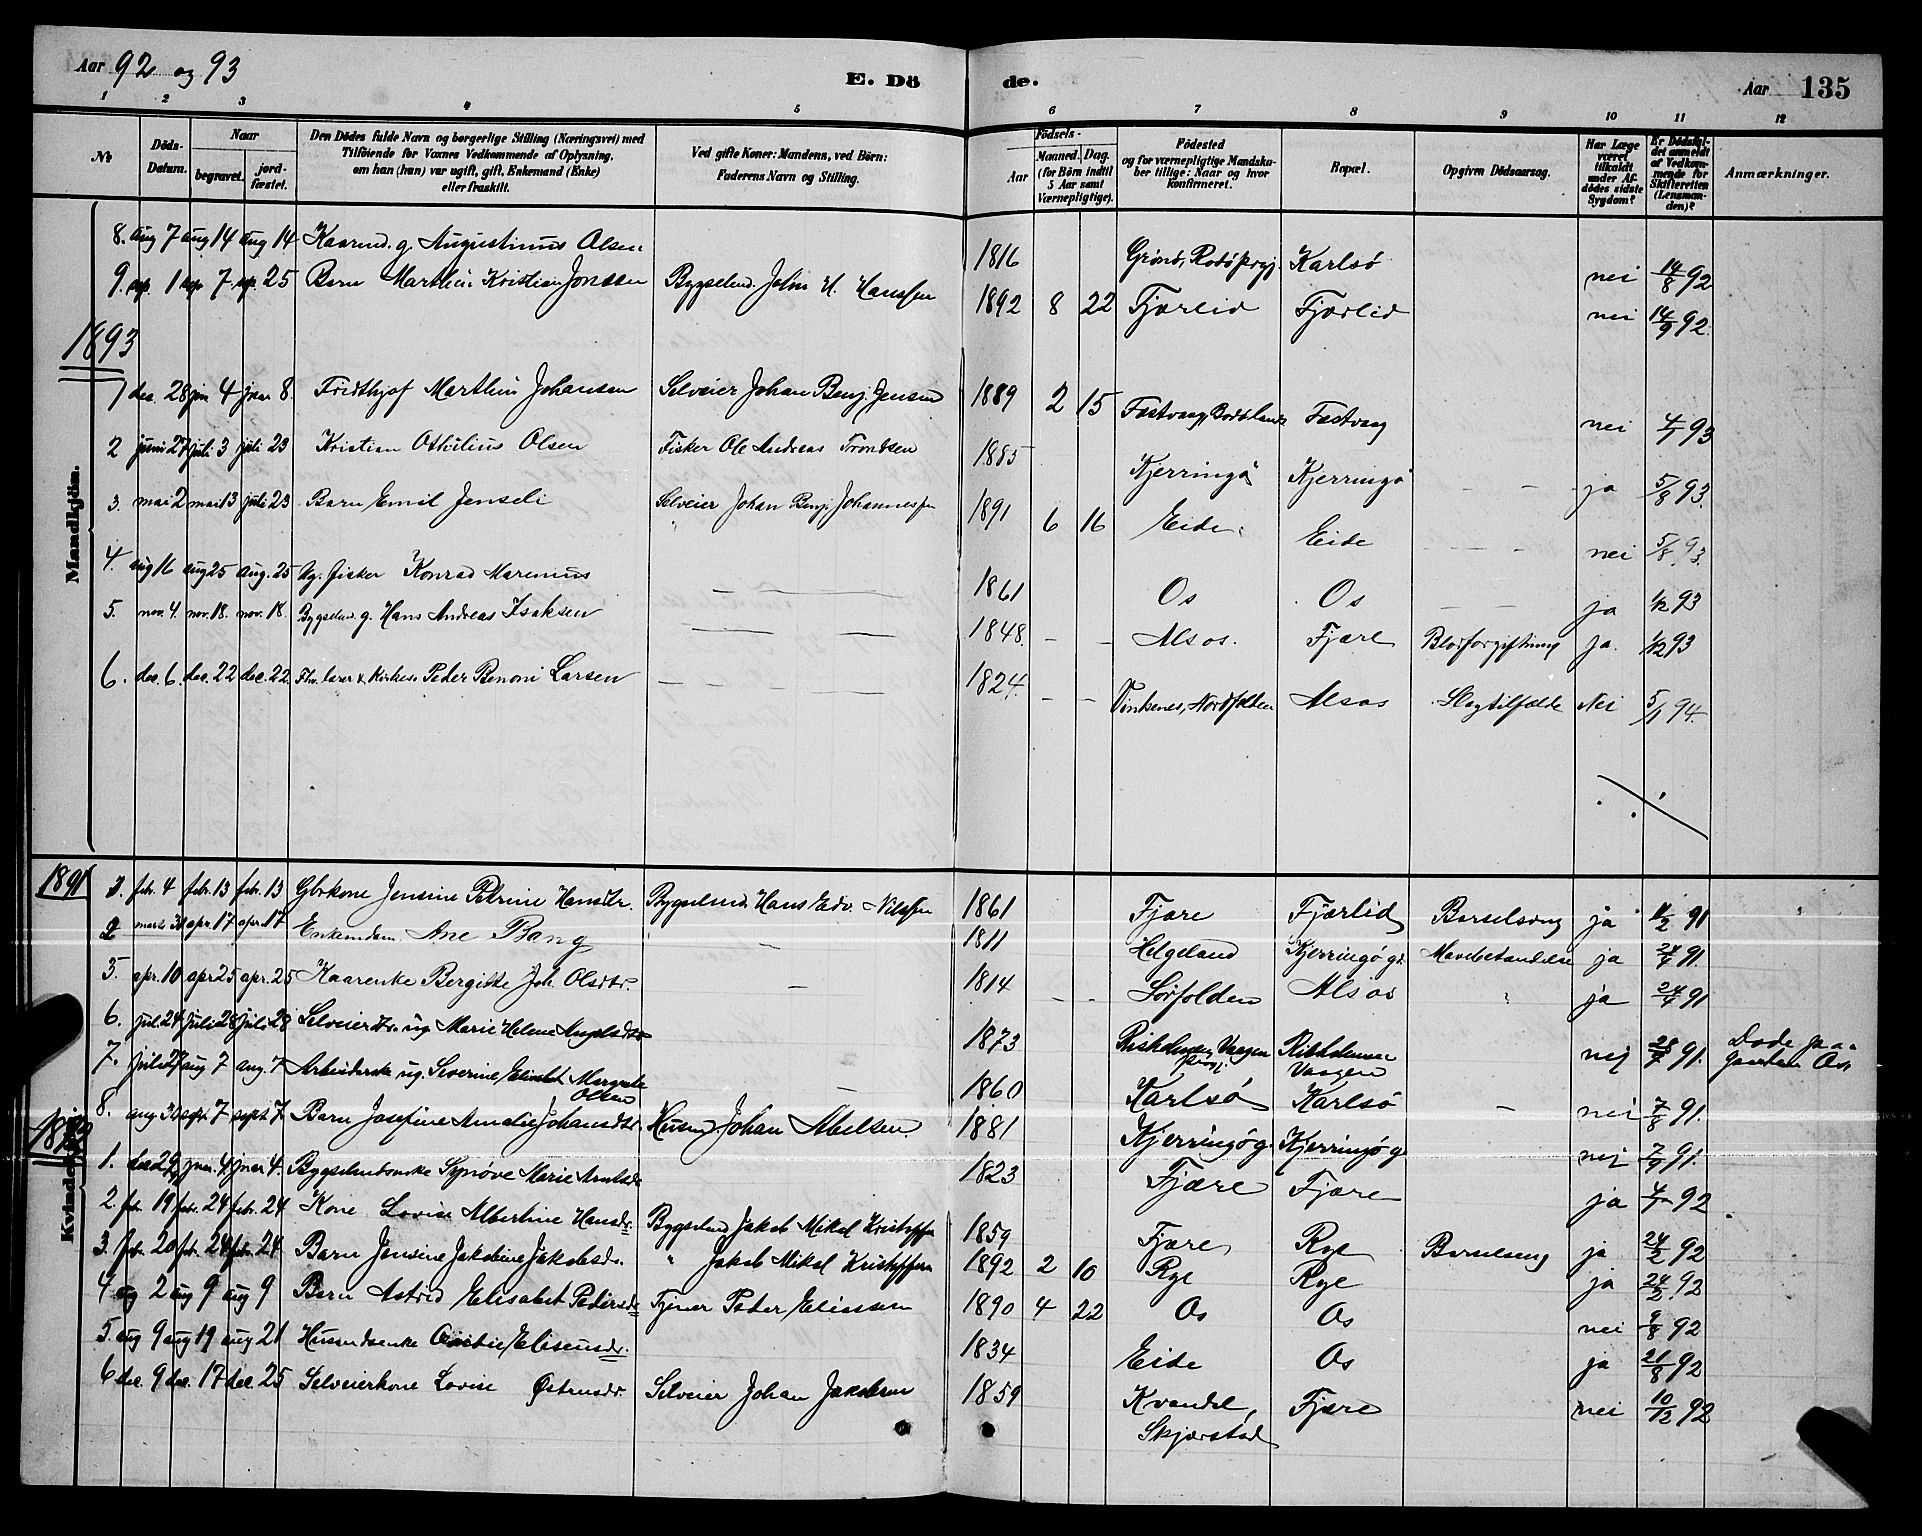 Aar 92 og 93 E. Dö de. Aar 135
1 2 3 4 5 6 7 8 9 10 11 12
No Döds-Datum. Naar begravet. jord-fæstet. Den Dödes fulde Navn og borgerlige Stilling (Næringsvei) med Tilföiende for Voxnes Vedkommende af Oplysning, om han (hun) var ugift, gift, Enkemand (Enke) eller fraskilt. Ved gifte Koner: Mandens, ved Börn: Faderens Navn og Stilling. Födsels- Aar Maaned. Dag. (for Börn indtil 5 Aar samt Værnepligtige). Födested og for værnepligtige Mandskaber tillige: Naar og hvor konfirmeret. Bopæl. Opgiven Dödsaarsag. Har Læge været tilkaldt under Afdödes sidste Sygdom? Er Dödsfaldet anmeldt af Vedkommende for Skifteretten (Lensmanden)? Anmærkninger.
Mandkjön.
8. aug 7 aug 14 aug 14 Kaarmd. g. Augustinus Olsen 1816 Grönö, Rödö Prgj. Karlsö nei 14/8 92
9. sep. 1 sep 7. sep. 25 Barn Marthin Kristian Jonssen Bygselmd. John H. Hanssen 1892 8 22 Fjærlid Fjærlid nei 14/9 92.
1893
1 dec. 28 jan 4 jnar 8. Fridthjof Marthin Johansen Selveier Johan Benj. Jensen 1889 2 15 Fastvaag, Fastvaag nei 4/1 93
2 juni 27 juli 3 juli 23 Kristian Othilius Olsen Fisker Ole Andreas Trondsen 1885 Kjerringö Kjerringö - - ja 5/8 93.
3. mai 2 mai 13 juli 23 Barn Emil Jenseli Selveier Johan Benj. Johannessen 1891 6 16 Eide Eide - - nei 5/8 93.
4. aug 16 aug 25 aug. 25 Ug. fisker Konrad Marenius 1861 Os Os ja 1/12 93
5. nov. 4. nov. 18. nov. 18. Bygselmd. g. Hans Andreas Isaksen 1848. - - Alsos. Fjære Blodforgiftning ja. 1/12 93
6. dec. 6. dec. 22 dec. 22. Fhv. lærer & Kirkes. Peder Benoni Larsen 1824. - - Vinkenes, Nordfolden Alsos Slagtilfælde Nei 5/1 94.
Kvindekjön
1891
febr. 4 febr. 13 febr. 13 Gbrkone Jensine Petrine Hansdtr. Bygselmd. Hans Edv. Nilssen 1861 Fjære Fjærlid Barselseng ja 11/2 91
marts 31 apr. 17 apr. 17 Enkemadam Ane Bang 1811 Helgeland Kjerringög. Mavebetændelse ja 24/4 91.
5. apr. 10 apr 25 apr. 25 Kaarenke Bergitte Joh. Olsdtr. 1814 Sörfolden Alsos ja 24/4 91
6. juli 24 juli 28 juli 28 Selveierdtr. ug. Marie Helene 1873 Vaagen Vaagen nej 28/7 91. Døde paa gaarden Os
7. juli 27 aug 7 aug. 7 Arbeiderske ug. Severine Elisabet Margrete Olsen 1860 Karlsö Karlsö - nei 7/8 91.
8. aug 30 sept. 7 sept 7 Barn Josefine Amalie Johansdtr. Husmd. Johan Abelsen. 1881 Kjerringög. Kjerringög nej 7/9 91.
1892
1. dec 29 jnar. 4 jnar 4. Bygselmdsenke Synöve Marie Arntsdr 1823 Fjære Fjære ja 4/1 92
2. febr. 19 febr. 24 febr. 24 Kone Lovise Albertine Hansdr. Bygselmd Jakob Mikal Kristoffersen 1859 Fjære Rye Barselseng ja 24/2 92
3. febr. 20 febr. 24 febr. 24 Barn Jensine Jakobine Jakobsdr. " Jakob Mikal Kristoffersen 1892 2 10 Rye Rye ja 24/2 92
4. ag 2 aug 9 aug 9 Barn Astrid Elisabet Pedersdr Tjener Peder Eliassen 1890 4 22 Os Os nei 9/8 92
5. aug 9 aug 19 aug 21 Husmdsenke Eliseusdr. 1834 Eide Os ja 21/8 92
6 dec. 9 dec. 17 dec. 25 Selveierkone Lovise Östensdr. Selveier Johan Jakobsen 1859 Kvandal, Skjærstad Fjære nei 10/12 92